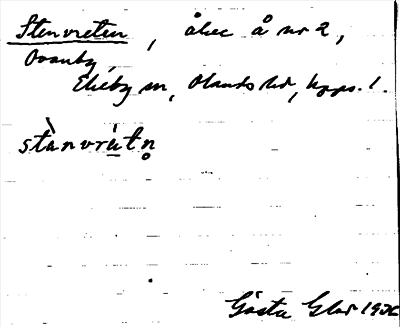 Stenvreten, åker å nr 2,
Ovanby,
Ekeby sn, Olands hd, Upps. l.
stànvrètn̥
Gösta